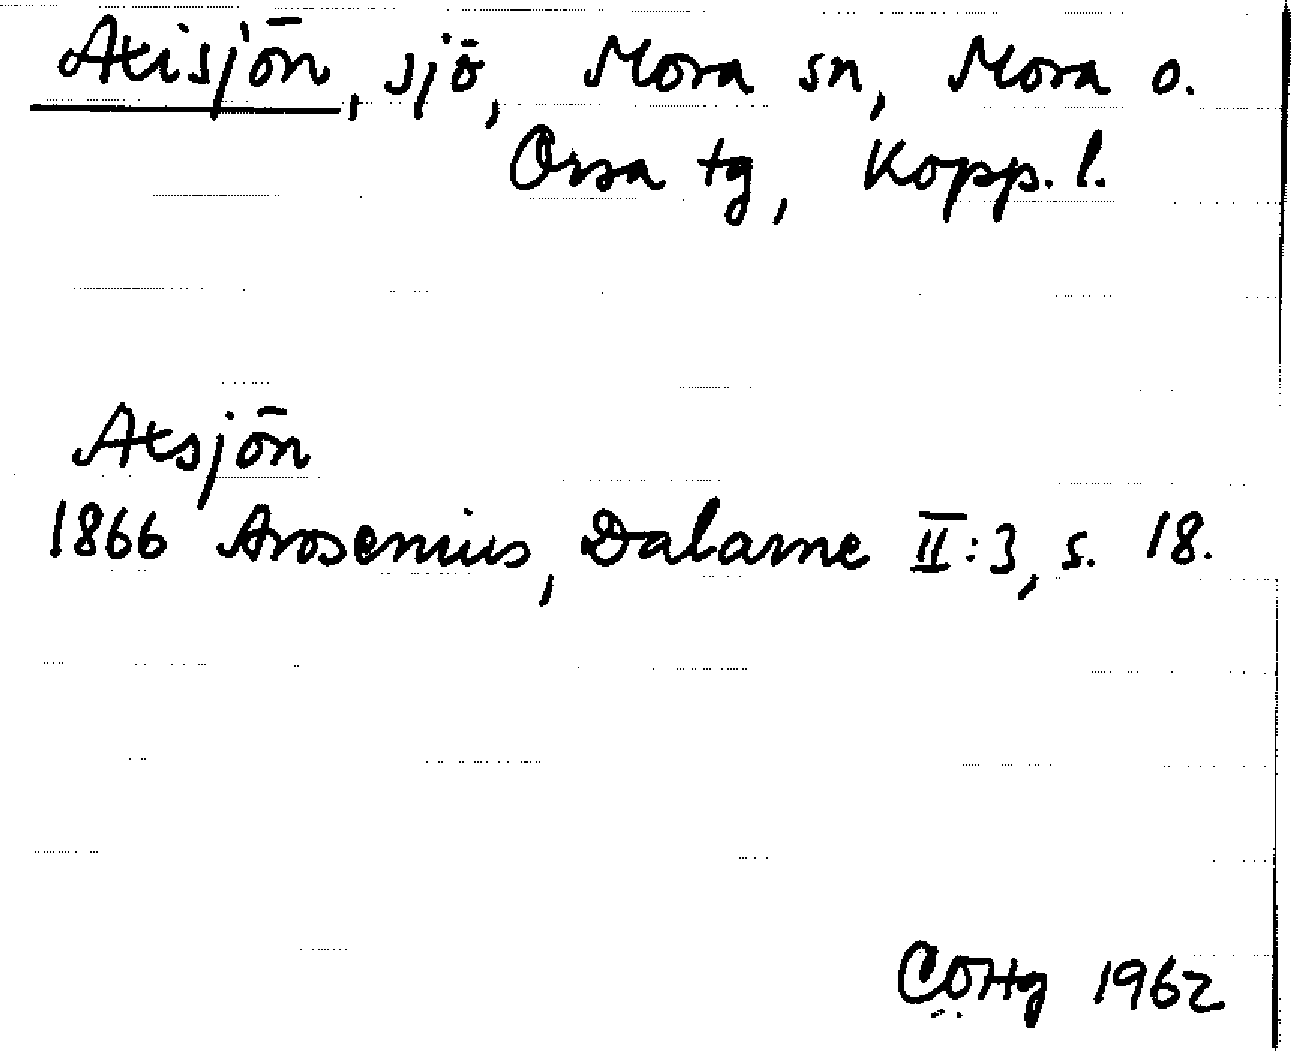 Atisjön, sjö, Mora sn, Mora o.
Orsa tg, Kopp. l.
Atsjön
1866 Arosenius, Dalarne II:3, s. 18.
COHg 1962